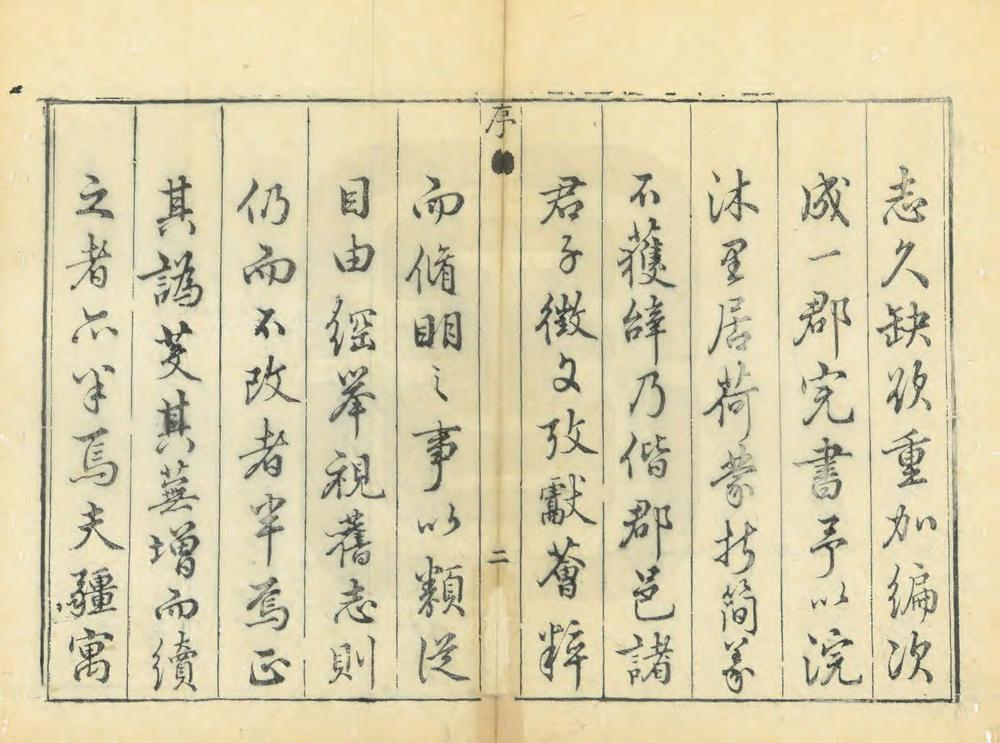 志久缺欲重加編次
成一郡完書予以浣
沐里居荷蒙折簡義
不獲辭乃偕郡邑諸
君子徵文攷獻薈粹
序
二
而脩明之事以類從
目由綱舉視舊志則
仍而不改者半焉正
其譌芟其蕪增而續
之者亦半焉夫疆寓